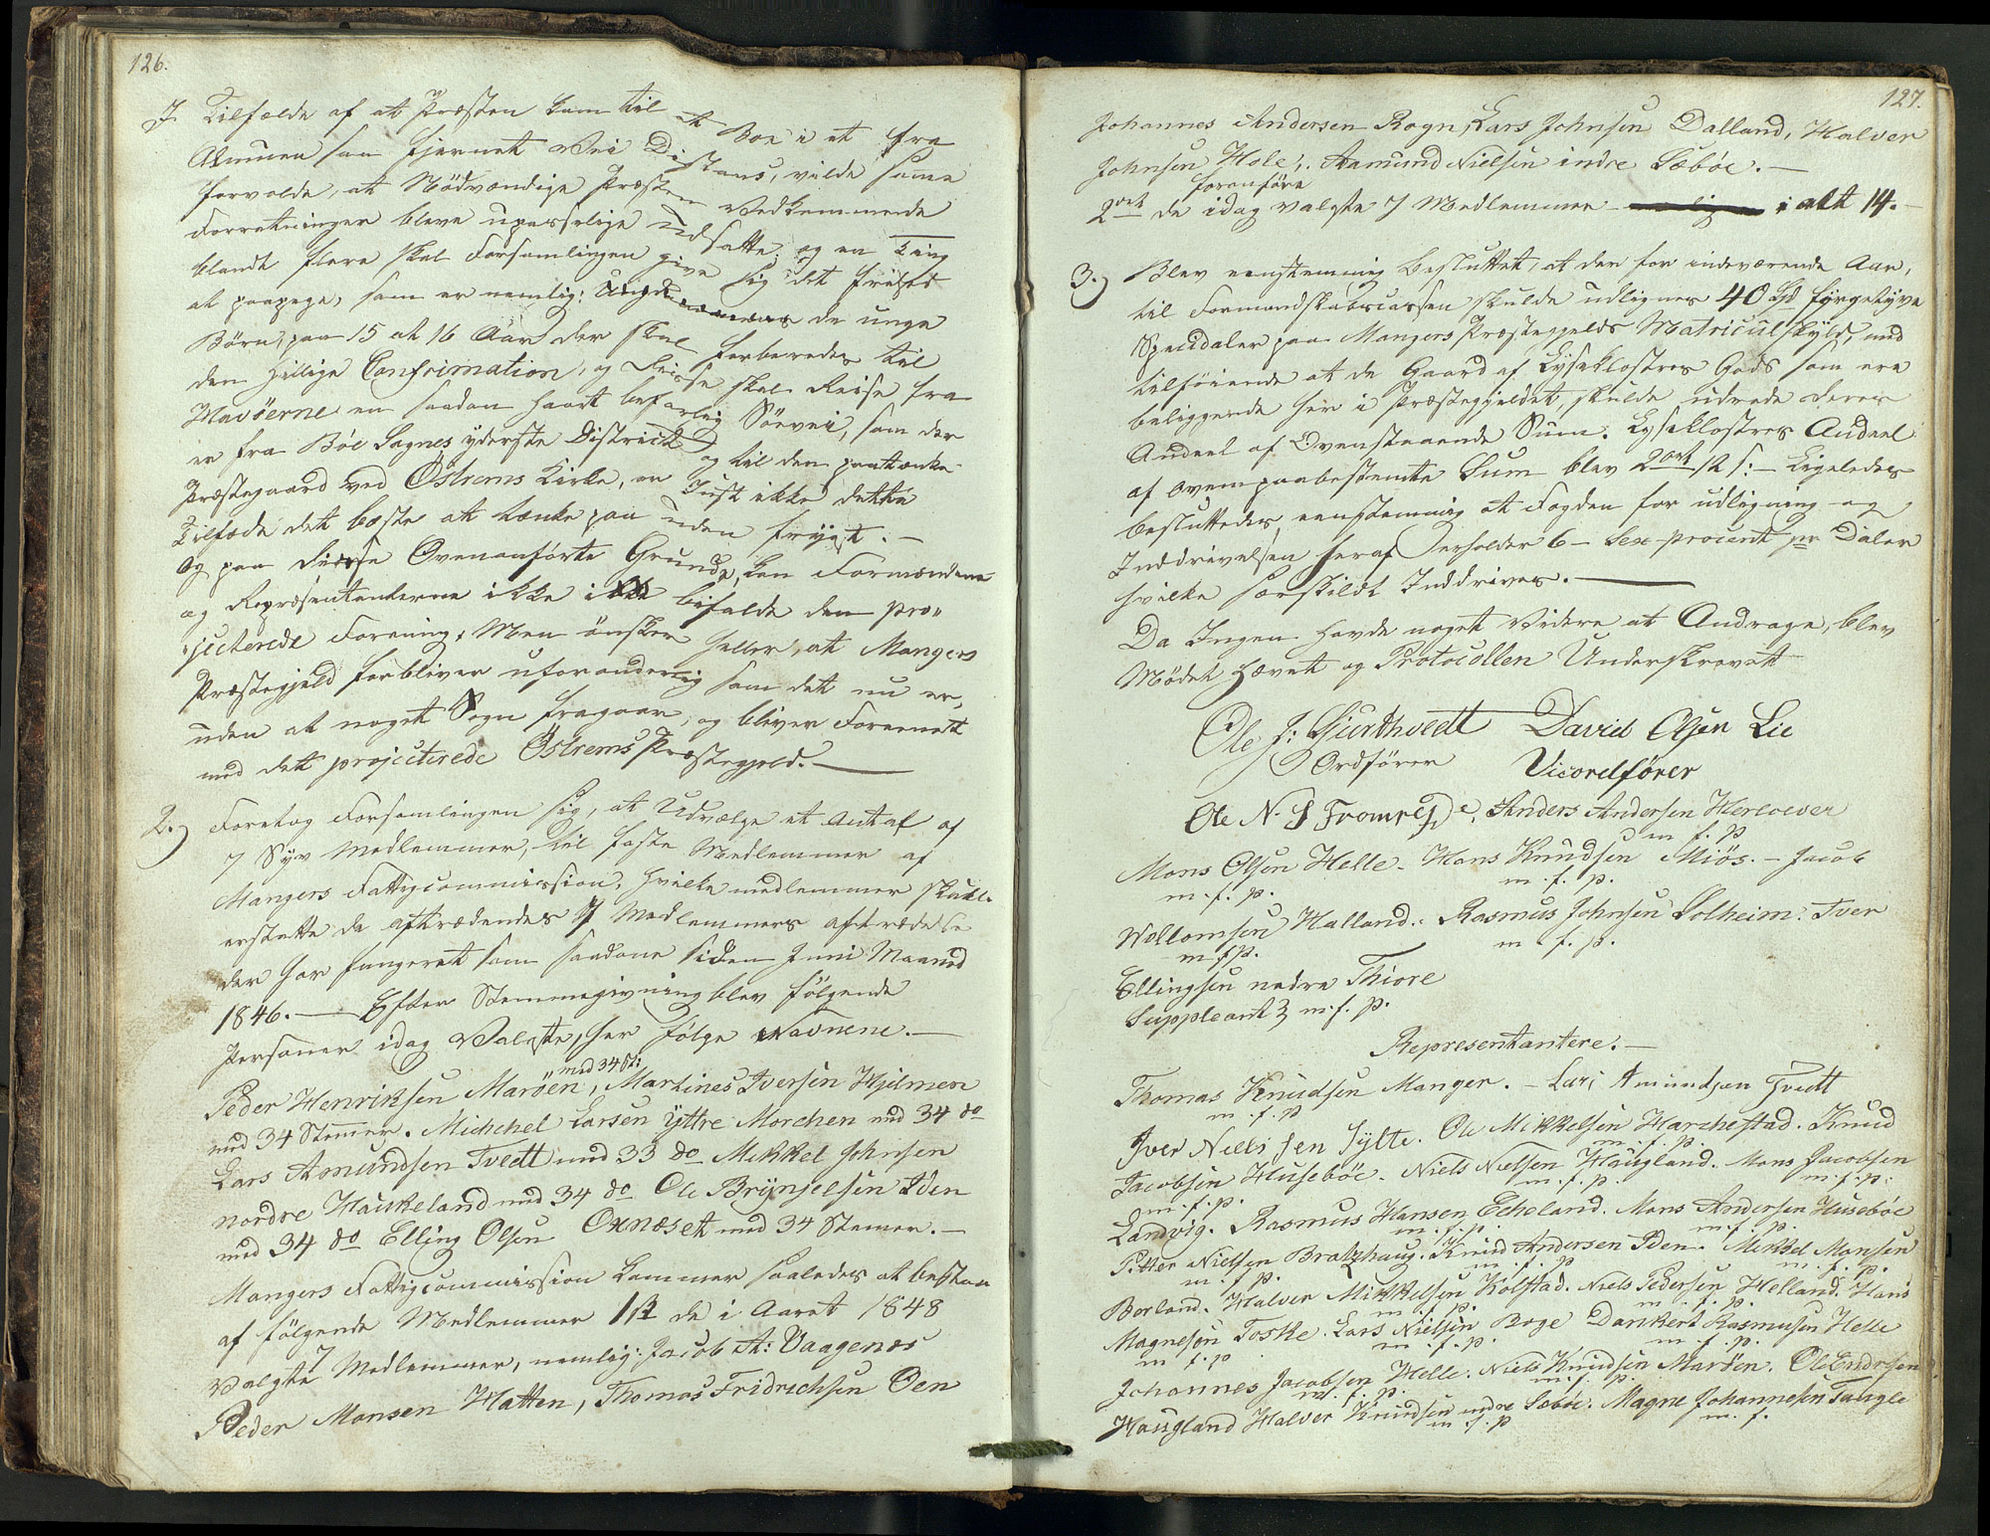 126.
I Tilfælde af at Præsten kom til at Boe i et fra
Almuen saa fjernet Vei Distans, vilde same
forvolde, at Nödvændige Præsten Vedkommende
Forretninger bleve upasselige Udsatte, og en Ting
blandt flere skal Forsamlingen give sig det frihed
at paapege, som er nemlig: de unge
Börn, paa 15 at 16 Aar der skal forberedes til
den hellige Confirmation, og disse skal Reise fra
Mavöerne en saadan haart befarlig Söevei, som der
er fra Böe Sognes yderste District og til den paatænkte
Præstegaard ved Östrems Kirke, er Just ikke dette
Tilfælde det beste at tænke paa uden frygt. —
Og paa disse Ovenanförte Grunde, kan Formændene
og Repræsentanterne ikke bifalde den pro„
„jecterede Forening, Men önsker heller, at Mangers
Præstegjeld forbliver uforanderlig som det nu er,
uden at noget Sogn fragaar, og bliver Foreenett
med dett projecterede Östrems Præstegjeld. —
2.) Foretog Forsamlingen sig, at Udvælge et Antal af
7 Syv Medlemmer, til faste Medlemmer af
Mangers Fattigcommission, hvilke medlemmer skulle
erstatte de aftrædendes 7 Medlemmers aftrædelse
der har fungeret som saadane siden Juni Maaned
1846. — Efter Stemmegivning blev fölgende
Personer idag Valgte, her fölge Navnene. —
med 34 St:
Peder Henriksen Maröen, Martines Iversen Hjelmen
med 34 Stemer. Michehel Larsen Yttre Morchen med 34 do
Lars Amundsen Tvedt med 33 do Mikkel Johnsen
nordre Hauskeland med 34 do Ole Brynjelsen Iden
med 34 do Elling Olsen Oxnæset med 34 Stemer. —
Mangers Fattigcommission kommer saaledes at bestaa
af fölgende Medlemmer 1st de i Aaret 1848
valgte 7 Medlemmer, nemlig: Jacob A: Vaagenes
Peder Monsen Hatten, Thomas Fridrichsen Öen
127.
Johannes Andersen Rogn, Lars Johnsen Dalland, Halver
Johnsen Hole, Aamund Nielsen indre Sæböe. —
foranföre
2det de idag valgte 7 Medlemmer i alt 14. —
3.) Blev eenstemmig besluttet, at der for indeværende Aar,
til Formandskabscassen skulde udlignes 40 Spd fyrgetyve
Speciedaler paa Mangers Præstegjelds Matriculskyld, med
tilföiende at de Gaard af Lyseklostres Gods som ere
beliggende her i Præstegjeldet, skulde udrede deres
Andeel af Ovenstaaende Sum. Lyseklostres Andeel
af ovenpaabestemte Sum blev 2 ort 12 s: — Ligeledes
besluttedes eenstemmig at Fogden for udligning og
Inddrivelsen heraf erholder 6 — Sex procent pr Daler
hvilke særskildt Inddrives. —
Da Ingen havde noget Videre at Andrage, blev
Mödet hævet og Protocollen Underskrevet
Ole J: Giurthvedt David Olsen Lie
Ordförer Viceordförer
Ole N. S Fromrej Anders Andersen Herlœver
m f. p
Mons Olsen Helle — Hans Knudsen Miös. — Jacob
m. f. p. m. f. p.
Wellomsen Halland. Rasmus Johnsen Solheim. Iver
m f p. m f. p.
Ellingsen nedre Thiore
Suppleant m. f. p.
Representantere. —
Thomas Knudsen Manger. — Lars Amundsen Tvedt
m. f. p
Iver Nielsen Sylte. Ole Mikkelsen Harchestad. Knud
m. f. p.
Jacobsen Huseböe. Niels Nielsen Haugland. Mons Jacobsen
m. f. p. m. f. p. m. f. p:
Landvig. Rasmus Hansen Echeland. Mons Andersen Huseböe
m. f. p. m. f. p.
Petter Nielsen Bratzhaug. Knud Andersen Iden. Mikkel Monsen
m. f. p. m. f. p m. f. p.
Borland. Halver Mikkelsen Kolstad. Niels Pedersen Helland. Hans
m. f. p. m. f. p.
Magnesen Toske. Lars Nielsen Boge Dankert Rasmusen Helle
m f. p m. f. p m. f. p.
Johannes Jacobsen Helle. Niels Knudsen Maröen. Ole Endresen
m. f. p. m. f. p.
Haugland Halver Knudsen indre Seböe. Magne Johannesen Taugle
m. f. p m. f.